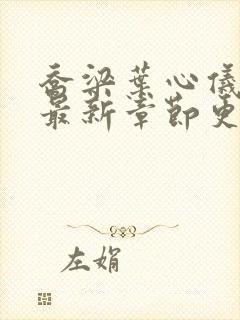 乔梁叶心仪
最新章节更
左娟